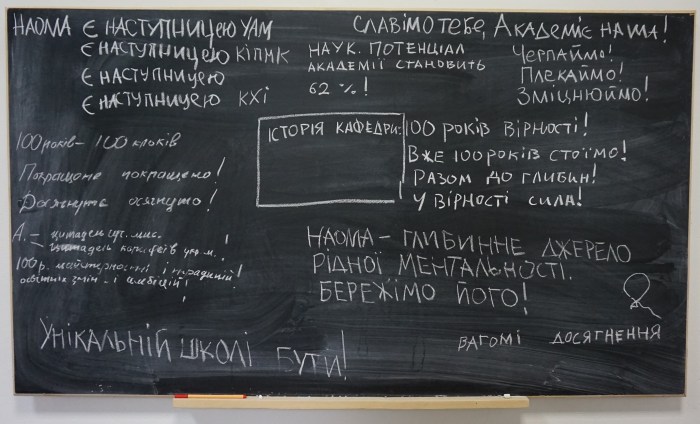 НАОМА Є НАСТУПНИЦЕЮ УАМ
Є НАСТУПНИЦЕЮ КІПМК
Є НАСТУПНИЦЕЮ
Є НАСТУПНИЦЕЮ КХІ
НАУК. ПОТЕНЦІАЛ
АКАДЕМІЇ СТАНОВИТЬ
62 %!
СЛАВІМО ТЕБЕ, АКАДЕМІЄ НАША!
ЧЕРПАЙМО!
ПЛЕКАЙМО!
ЗМІЦНЮЙМО!
100 років – 100 кроків
Покращуте покращено!
Досягнуте осягнуто!
ІСТОРІЯ КАФЕДРИ:
100 РОКІВ ВІРНОСТІ!
ВЖЕ 100 РОКІВ СТОЇМО!
РАЗОМ ДО ГЛИБИН!
У ВІРНОСТІ СИЛА!
А. – цитадель суч. мис. !
цитадель корифеїв укр. м. !
100 р. майстерності і традицій!
освітніх змін – і амбіцій!
!
НАОМА – ГЛИБИННЕ ДЖЕРЕЛО
РІДНОЇ МЕНТАЛЬНОСТІ.
БЕРЕЖІМО ЙОГО!
УНІКАЛЬНІЙ ШКОЛІ БУТИ!
ВАГОМІ ДОСЯГНЕННЯ